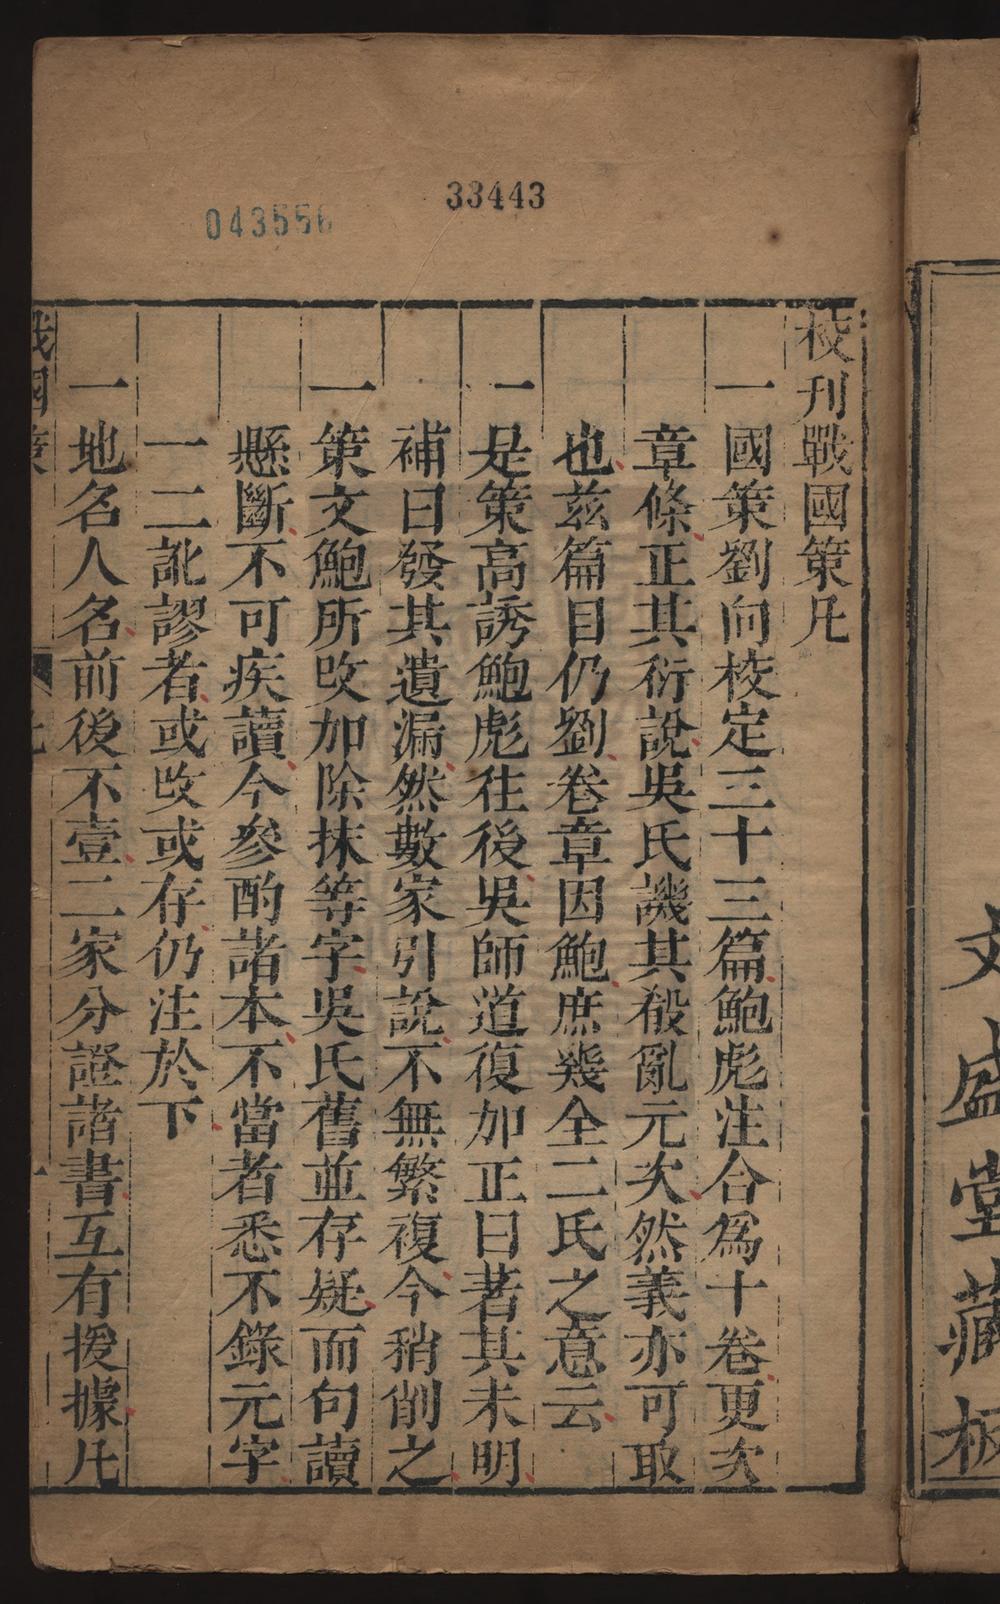 33443
043556
文盛堂藏板
校刋戰國策凡
一國策劉向校定三十三篇鮑彪注合爲十卷更次
章條正其衍說吳氏譏其殽亂元次然義亦可取
也茲篇目仍劉卷章因鮑庶幾全二氏之意云
一是策高誘鮑彪往後吳師道復加正曰著其未明
補曰發其遺漏然數家引說不無繁複今稍削之
一策文鮑所攺加除抹等字吳氏舊並存疑而句讀
懸斷不可疾讀今參酌諸本不當者悉不錄元字
一二訛謬者或攺或存仍注於下
一地名人名前後不壹二家分證諸書互有援據凡
戰國策
凡
一